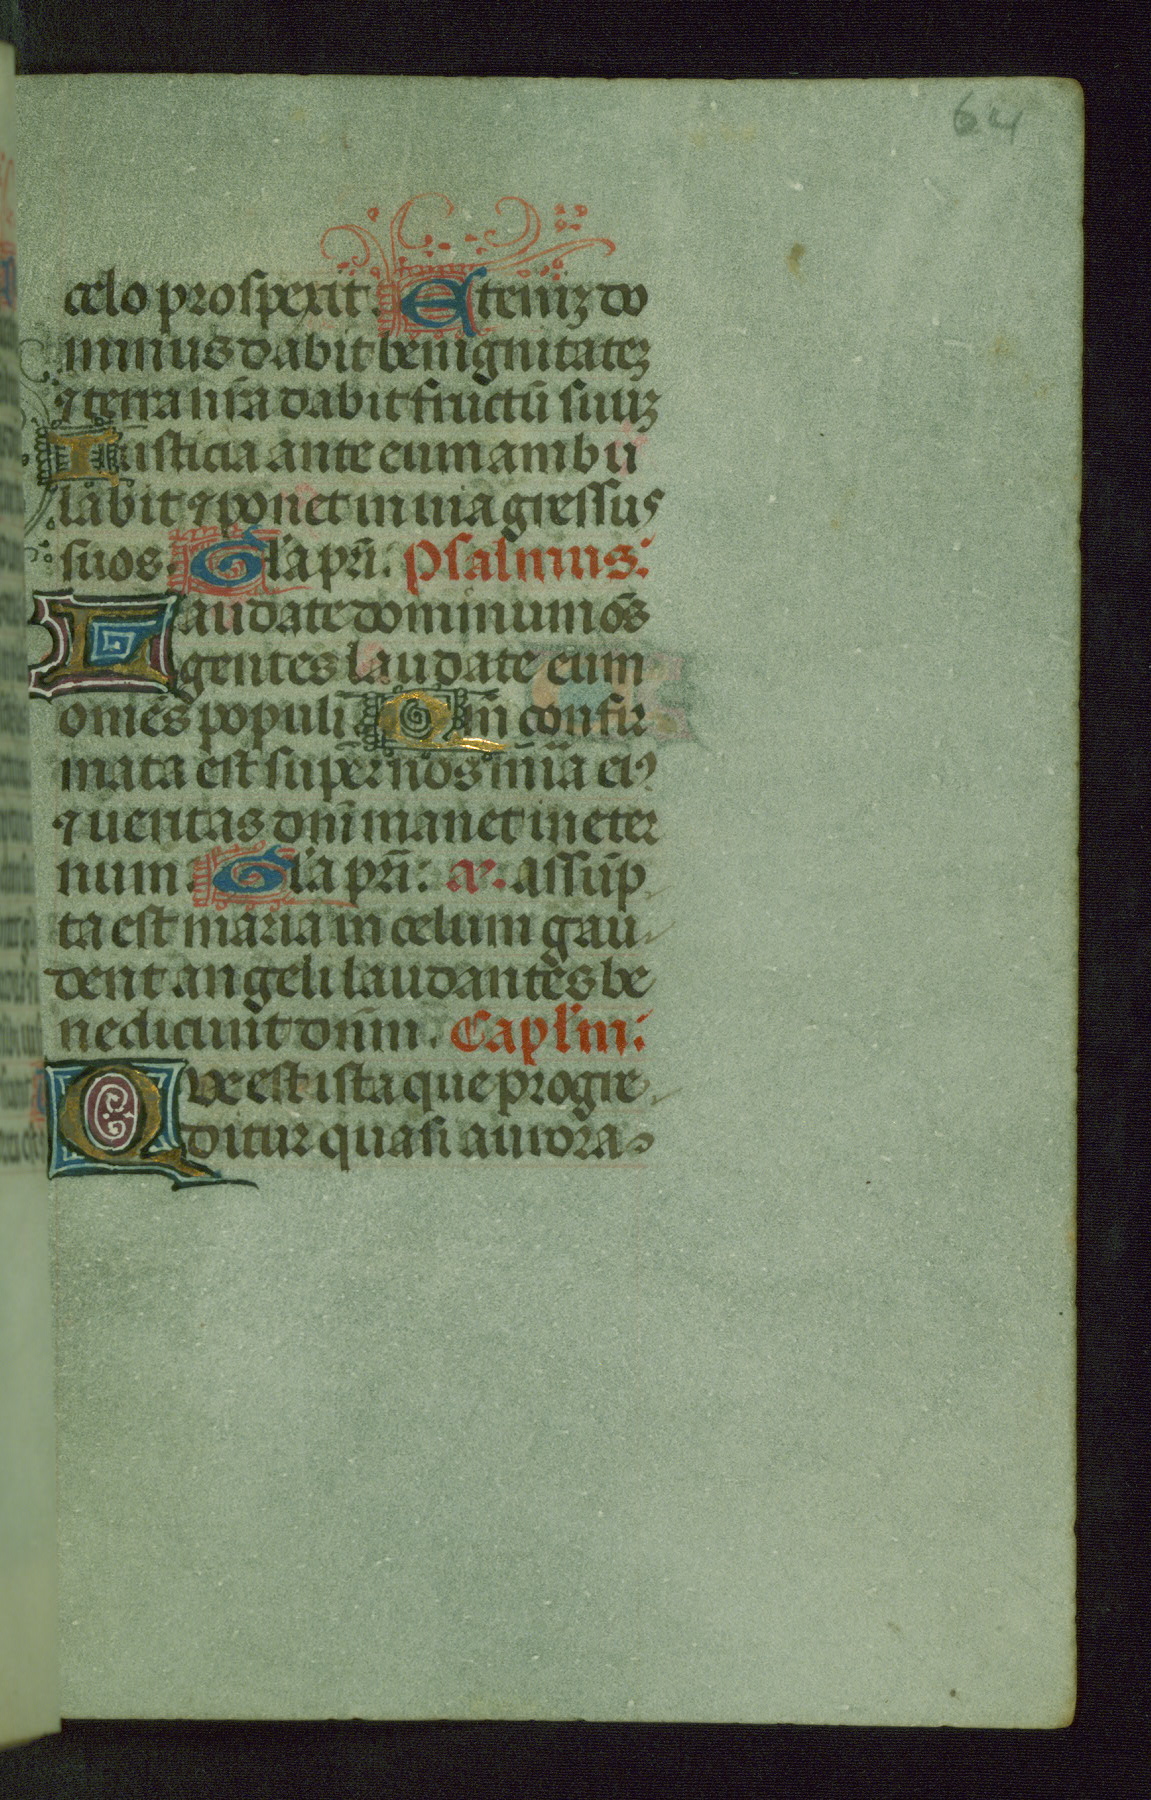 64
celo prospexit. Eteniꝫ do
minus dabit benignitateꝫ
⁊ terra nr̄a dabit fructū suuꝫ
Iusticia ante eum ambu
labit ⁊ ponet in uia gressus
suos. Gl'a pr̄i. Psalmus:
Laudate dominum om̄s
gentes laudate eum
omēs populi Qm̄ confir
mata est super nos mīa eiꝰ
⁊ ueritas dn̄i manet in eter
num. Gl'a pr̄i: a. assūp
ta est maria in celum gau
dent angeli laudantes be
nedicunt dnm̄. Capl'm:
Que est ista que progre
ditur quasi aurora